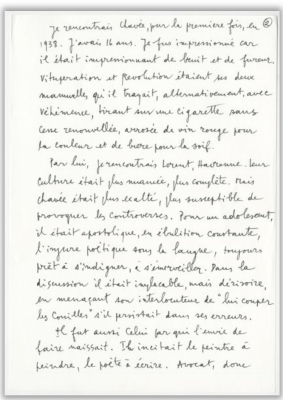 ②
Je rencontrais Chavée, pour la première fois, en
1938. J'avais 16 ans. Je fus impressionné car
il était impressionnant de bruit et de fureur.
Vitupération et Révolution étaient ses deux
mamelles qu'il trayait, alternativement, avec
véhémence, tirant sur une cigarette sans
cesse renouvellée, arrosée de vin rouge pour
la couleur et de bière pour la soif.
Par lui, je rencontrais Lorent, Havrenne. Leur
culture était plus nuancée, plus complète. Mais
Chavée était plus exalté, plus susceptible de
provoquer les controverses. Pour un adolescent,
il était apostolique, en ébulition constante,
l'injure poétique sous la langue, toujours
prêt à s'indigner, à s'émerveiller. Dans la
discussion il était implacable, mais dérisoire,
en menaçant son interlocuteur de "lui couper
les couilles" s'il persistait dans ses erreurs.
Il fut aussi celui par qui l'envie de
faire naissait. Il incitait le peintre à
peindre, le poète à écrire. Avocat, donc